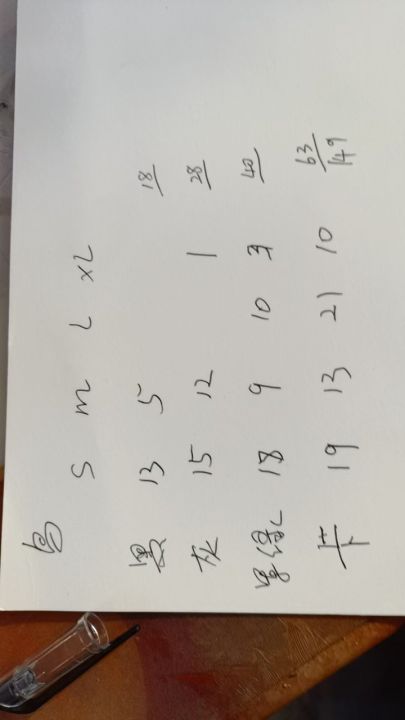 色 S m L xL
黑 13 5 18
灰 15 12 1 28
墨绿 18 9 10 3 40
卡 19 13 21 10 63
149